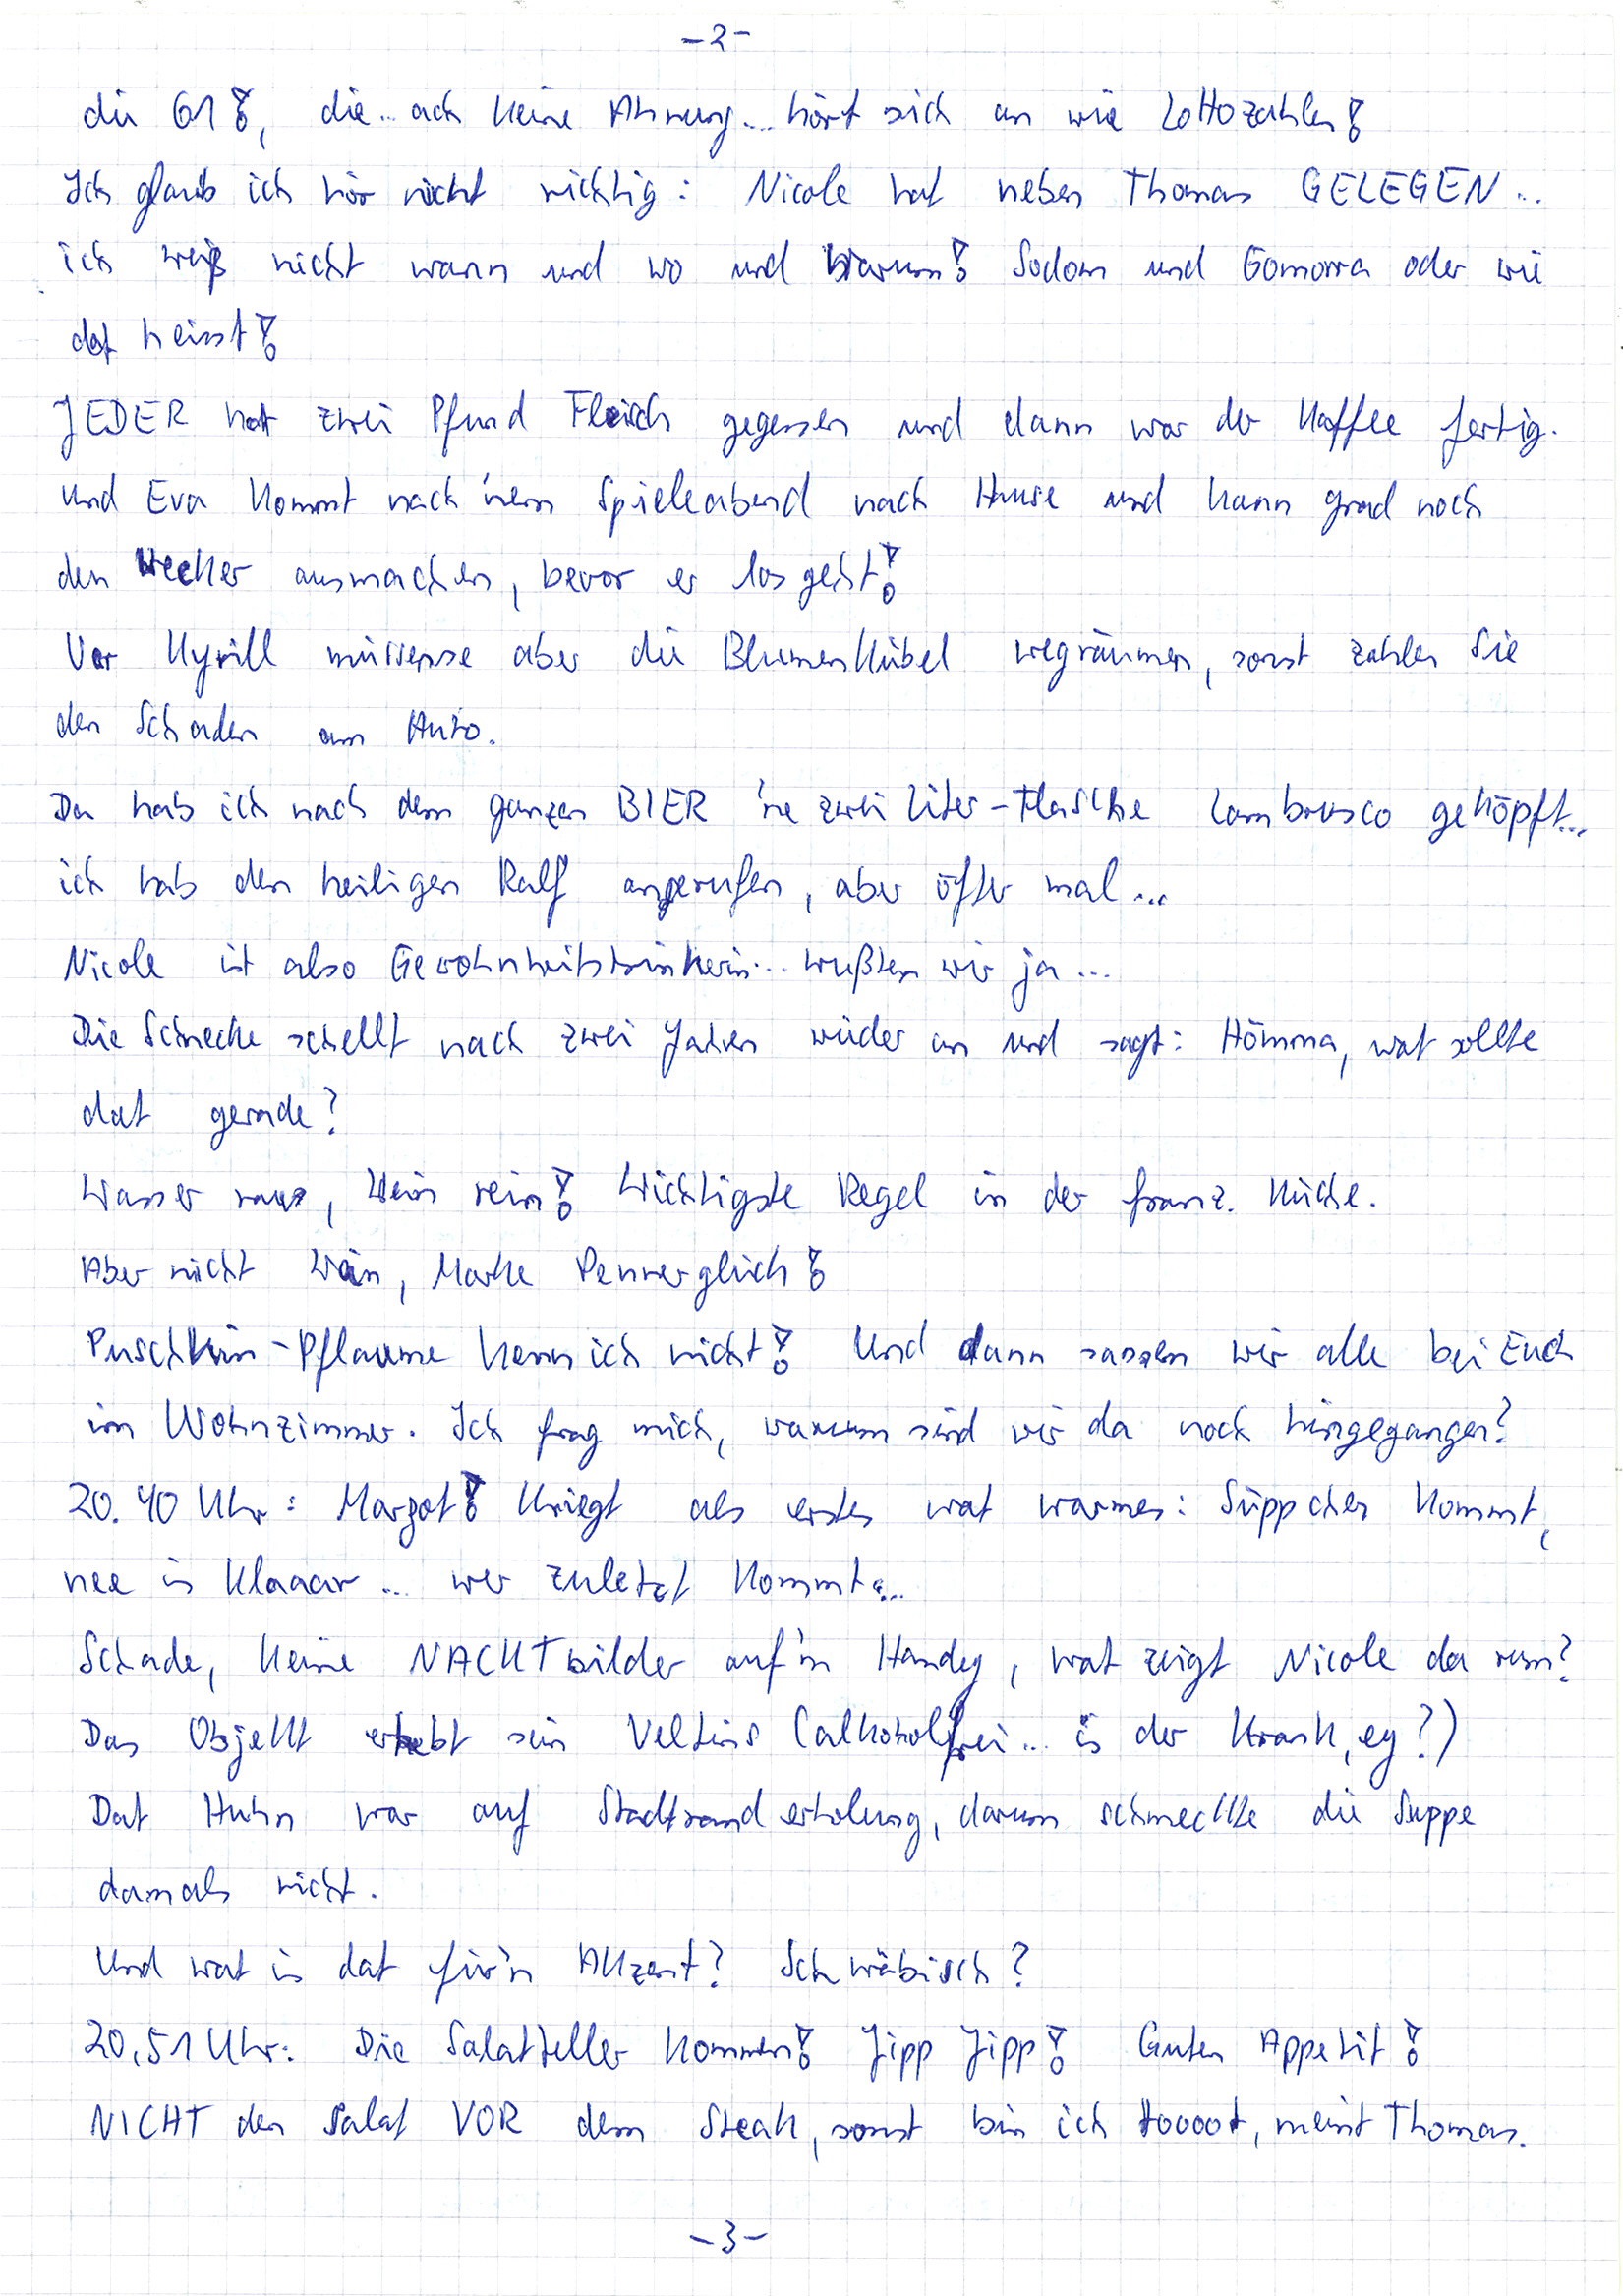 -2-
die 61!, die... ach keine Ahnung... hört sich an wie Lottozahlen!
Ich glaub ich hör nicht richtig: Nicole hat neben Thomas GELEGEN...
ich weiß nicht wann und wo und warum! Sodom und Gomorra oder wie
dat heisst!
JEDER hat zwei Pfund Fleisch gegessen und dann war der Kaffee fertig.
Und Eva kommt nach 'nem Spieleabend nach Hause und kann grad noch
den Wecker ausmachen, bevor er los geht!
Vor Kyrill müssense aber die Blumenkübel wegräumen, sonst zahlen Sie
den Schaden am Auto.
Da hab ich nach dem ganzen BIER 'ne zwei Liter-Flasche Lambrusco geköpft...
ich hab den heiligen Ralf angerufen, aber öfter mal...
Nicole ist also Gewohnheitstrinkerin... wußten wir ja...
Die Schnecke schellt nach zwei Jahren wieder an und sagt: Hömma, wat sollte
dat gerade?
Wasser raus, Wein rein! Wichtigste Regel in der franz. Küche.
Aber nicht Wein, Marke Pennerglück!
Puschkin-Pflaume kenn ich nicht! Und dann sassen wir alle bei Euch
im Wohnzimmer. Ich frag mich, warum sind wir da noch hingegangen?
20.40 Uhr: Margot! Kriegt als erstes wat warmes: Süppchen kommt,
nee is klaaar... wer zuletzt kommt...
Schade, keine NACKTbilder auf'm Handy, wat zeigt Nicole da rum?
Das Objekt erhebt sein Veltins (alkoholfrei... is der krank, ey?)
Dat Huhn war auf Stadtranderholung, darum schmeckte die Suppe
damals nicht.
Und wat is dat für'n Akzent? Schwäbisch?
20.51 Uhr: Die Salatteller kommen! Jipp Jipp! Guten Appetit!
NICHT den Salat VOR dem Steak, sonst bin ich toooot, meint Thomas.
-3-